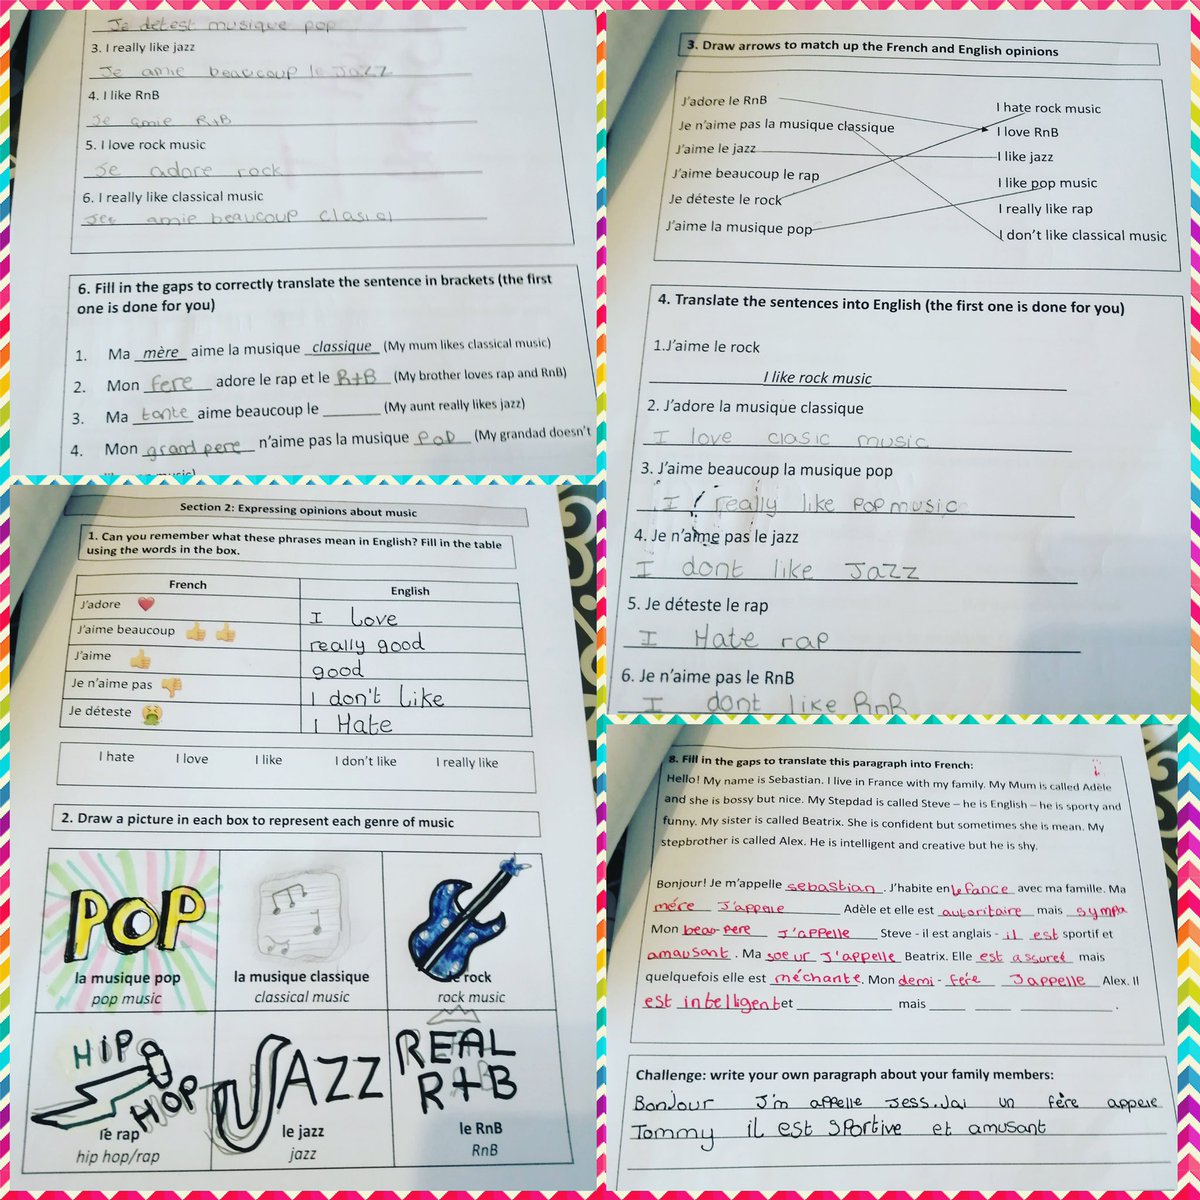 Je detest musique pop
3. I really like jazz
Je amie beaucoup le JAZZ
4. I like RnB
Je amie R+B
5. I love rock music
Je adore rock
6. I really like classical music
Jee amie beaucoup clasical
6. Fill in the gaps to correctly translate the sentence in brackets (the first
one is done for you)
1. Ma mère aime la musique classique (My mum likes classical music)
2. Mon fere adore le rap et le R+B (My brother loves rap and RnB)
3. Ma tante aime beaucoup le ________ (My aunt really likes jazz)
4. Mon grand pere n'aime pas la musique POP (My grandad doesn't
3. Draw arrows to match up the French and English opinions
J'adore le RnB
Je n'aime pas la musique classique
J'aime le jazz
J'aime beaucoup le rap
Je déteste le rock
J'aime la musique pop
I hate rock music
I love RnB
I like jazz
I like pop music
I really like rap
I don't like classical music
4. Translate the sentences into English (the first one is done for you)
1.J'aime le rock
I like rock music
2. J'adore la musique classique
I love clasic music
3. J'aime beaucoup la musique pop
I really like pop music
4. Je n'aime pas le jazz
I dont like JAZZ
5. Je déteste le rap
I Hate rap
6. Je n'aime pas le RnB
I dont like RnB
Section 2: Expressing opinions about music
1. Can you remember what these phrases mean in English? Fill in the table
using the words in the box.
French English
J'adore I Love
J'aime beaucoup really good
J'aime good
Je n'aime pas I don't Like
Je déteste I Hate
I hate I love I like I don't like I really like
2. Draw a picture in each box to represent each genre of music
POP
la musique pop
pop music
la musique classique
classical music
rock
rock music
HIP
HOP
le rap
hip hop/rap
JAZZ
le jazz
jazz
REAL
R+B
le RnB
RnB
8. Fill in the gaps to translate this paragraph into French:
Hello! My name is Sebastian. I live in France with my family. My Mum is called Adèle
and she is bossy but nice. My Stepdad is called Steve – he is English – he is sporty and
funny. My sister is called Beatrix. She is confident but sometimes she is mean. My
stepbrother is called Alex. He is intelligent and creative but he is shy.
Bonjour! Je m'appelle sebastian. J'habite en le fance avec ma famille. Ma
mére J'appele Adèle et elle est autoritaire mais sympa
Mon beau-pere J'appelle Steve - il est anglais - il est sportif et
amausant. Ma soeur J'appelle Beatrix. Elle est assuret mais
quelquefois elle est méchante. Mon demi - fére Jappelle Alex. Il
est intelligent et ________ mais ____ ____ ________.
Challenge: write your own paragraph about your family members:
Bonjour J'm appelle Jess. Jai un fére appele
Tommy il est sportive et amusant